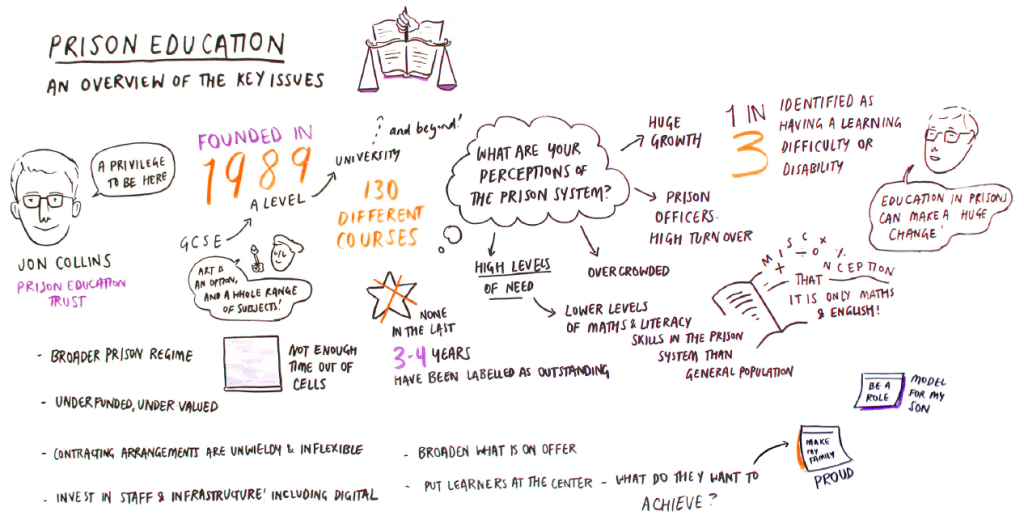 PRISON EDUCATION
AN OVERVIEW OF THE KEY ISSUES
A PRIVILEGE
TO BE HERE
JON COLLINS
PRISON EDUCATION
TRUST
FOUNDED IN
1989
GCSE
A LEVEL
UNIVERSITY
and beyond!
ART IS
AN OPTION,
AND A WHOLE RANGE
OF SUBJECTS!
130
DIFFERENT
COURSES
WHAT ARE YOUR
PERCEPTIONS OF
THE PRISON SYSTEM?
HUGE
GROWTH
PRISON
OFFICERS-
HIGH TURNOVER
OVERCROWDED
HIGH LEVELS
OF NEED
LOWER LEVELS
OF MATHS & LITERACY
SKILLS IN THE PRISON
SYSTEM THAN
GENERAL POPULATION
1 IN
3
IDENTIFIED AS
HAVING A LEARNING
DIFFICULTY OR
DISABILITY
EDUCATION IN PRISONS
CAN MAKE A HUGE
CHANGE!
MISCONCEPTION
THAT
IT IS ONLY MATHS
& ENGLISH!
NONE
IN THE LAST
3-4 YEARS
HAVE BEEN LABELLED AS OUTSTANDING
- BROADER PRISON REGIME
NOT ENOUGH
TIME OUT OF
CELLS
- UNDERFUNDED, UNDER VALUED
- CONTRACTING ARRANGEMENTS ARE UNWIELDY & INFLEXIBLE
- INVEST IN STAFF & INFRASTRUCTURE' INCLUDING DIGITAL
- BROADEN WHAT IS ON OFFER
- PUT LEARNERS AT THE CENTER - WHAT DO THEY WANT TO
ACHIEVE?
BE A
ROLE
MODEL
FOR MY
SON
MAKE
MY
FAMILY
PROUD